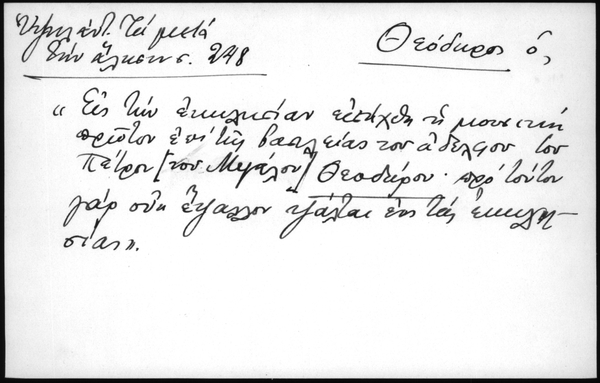 Ὑψηλάντ. Τά μετά
τήν ἅλωσιν σ. 248
Θεόδωρος ὁ,
« Εἰς τήν ἐκκλησίαν εἰσήχθη ἡ μουσική
πρῶτον ἐπί τῆς βασιλείας του ἀδελφου του
Πέτρου [του Μεγάλου] Θεοδώρου · πρό τούτου
γάρ οὐκ ἔψαλλον ψάλται εἰς τάς ἐκκλη-
σίας ».